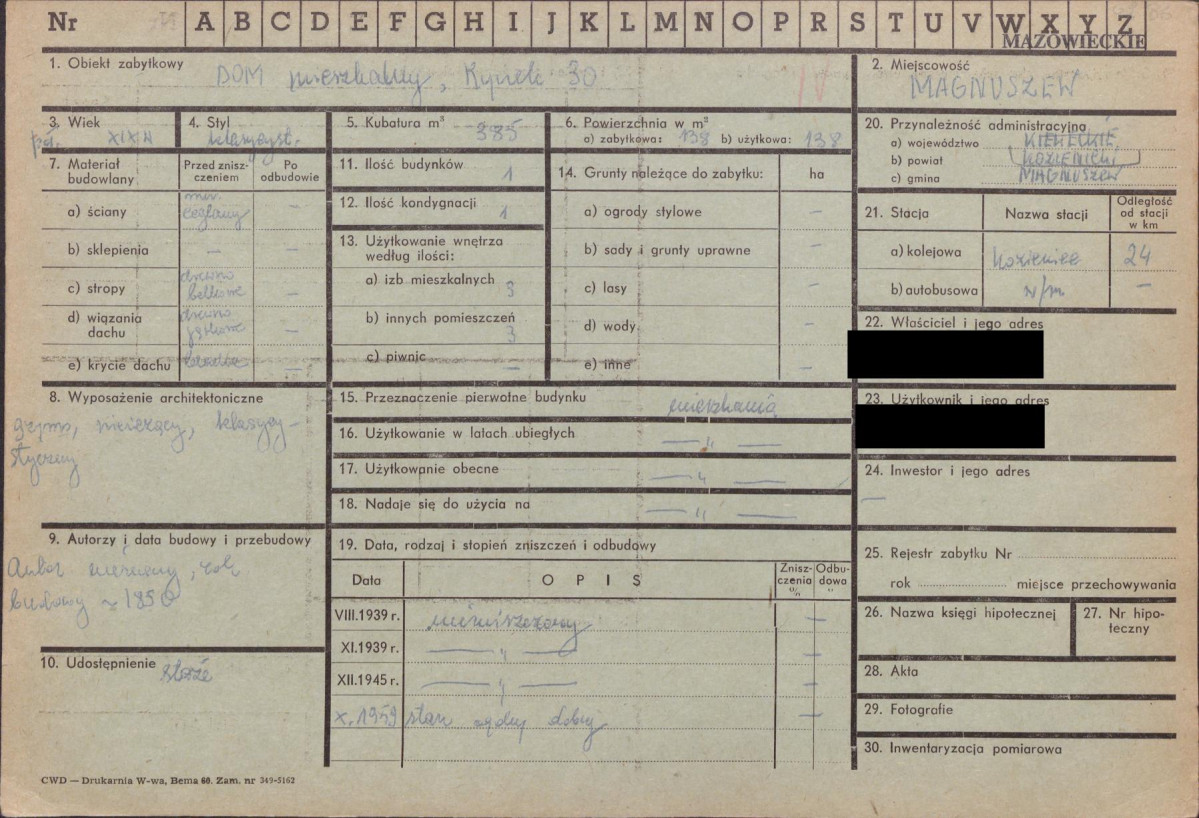 Nr A B C D E F G H I J K L M N O P R S T U V W X Y Z
MAZOWIECKIE
1. Obiekt zabytkowy DOM mieszkalny, Rynek 30
IV
2. Miejscowość
MAGNUSZEW
3. Wiek
poł. XIX w
4. Styl
klasycyst.
5. Kubatura m³ 385
6. Powierzchnia w m²
a) zabytkowa: 138 b) użytkowa: 138
7. Materiał budowlany
Przed zniszczeniem
Po odbudowie
a) ściany mur. ceglany
b) sklepienia — —
c) stropy drewno belkowe —
d) wiązania dachu drewno jętkowe —
e) krycie dachu blacha —
8. Wyposażenie architektoniczne
gzyms, wieńczący, klasycy-
styczny
9. Autorzy i data budowy i przebudowy
Autor nieznany, rok
budowy ~ 1850
10. Udostępnienie
11. Ilość budynków 1
12. Ilość kondygnacji 1
13. Użytkowanie wnętrza według ilości:
a) izb mieszkalnych 3
b) innych pomieszczeń 3
c) piwnic —
14. Grunty należące do zabytku: ha
a) ogrody stylowe —
b) sady i grunty uprawne —
c) lasy —
d) wody —
e) inne —
15. Przeznaczenie pierwotne budynku mieszkania
16. Użytkowanie w latach ubiegłych — " —
17. Użytkowanie obecne — " —
18. Nadaje się do użycia na — " —
19. Data, rodzaj i stopień zniszczeń i odbudowy
Data OPIS Zniszczenia % Odbudowa "
VIII.1939 r. niezniszczony —
XI.1939 r. — " — —
XII.1945 r. — " — —
X.1959 stan dobry —
20. Przynależność administracyjna
a) województwo KIELECKIE
b) powiat KOZIENICKI
c) gmina MAGNUSZEW
21. Stacja Nazwa stacji Odległość od stacji w km
a) kolejowa Kozienice 24
b) autobusowa w/m —
22. Właściciel i jego adres
23. Użytkownik i jego adres
24. Inwestor i jego adres
—
25. Rejestr zabytku Nr
rok miejsce przechowywania
26. Nazwa księgi hipotecznej
27. Nr hipo-
teczny
28. Akta
29. Fotografie
30. Inwentaryzacja pomiarowa
CWD — Drukarnia W-wa, Bema 60. Zam. nr 349-5162